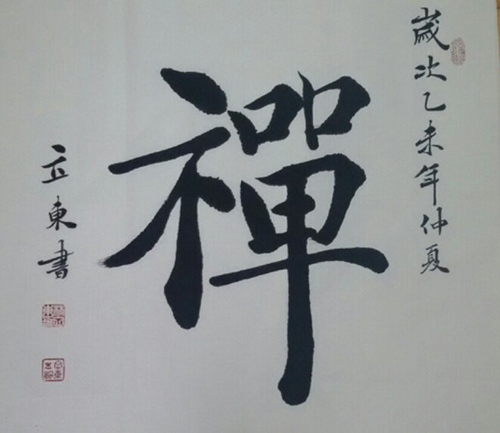 歲次乙未年仲夏
禪
立東書